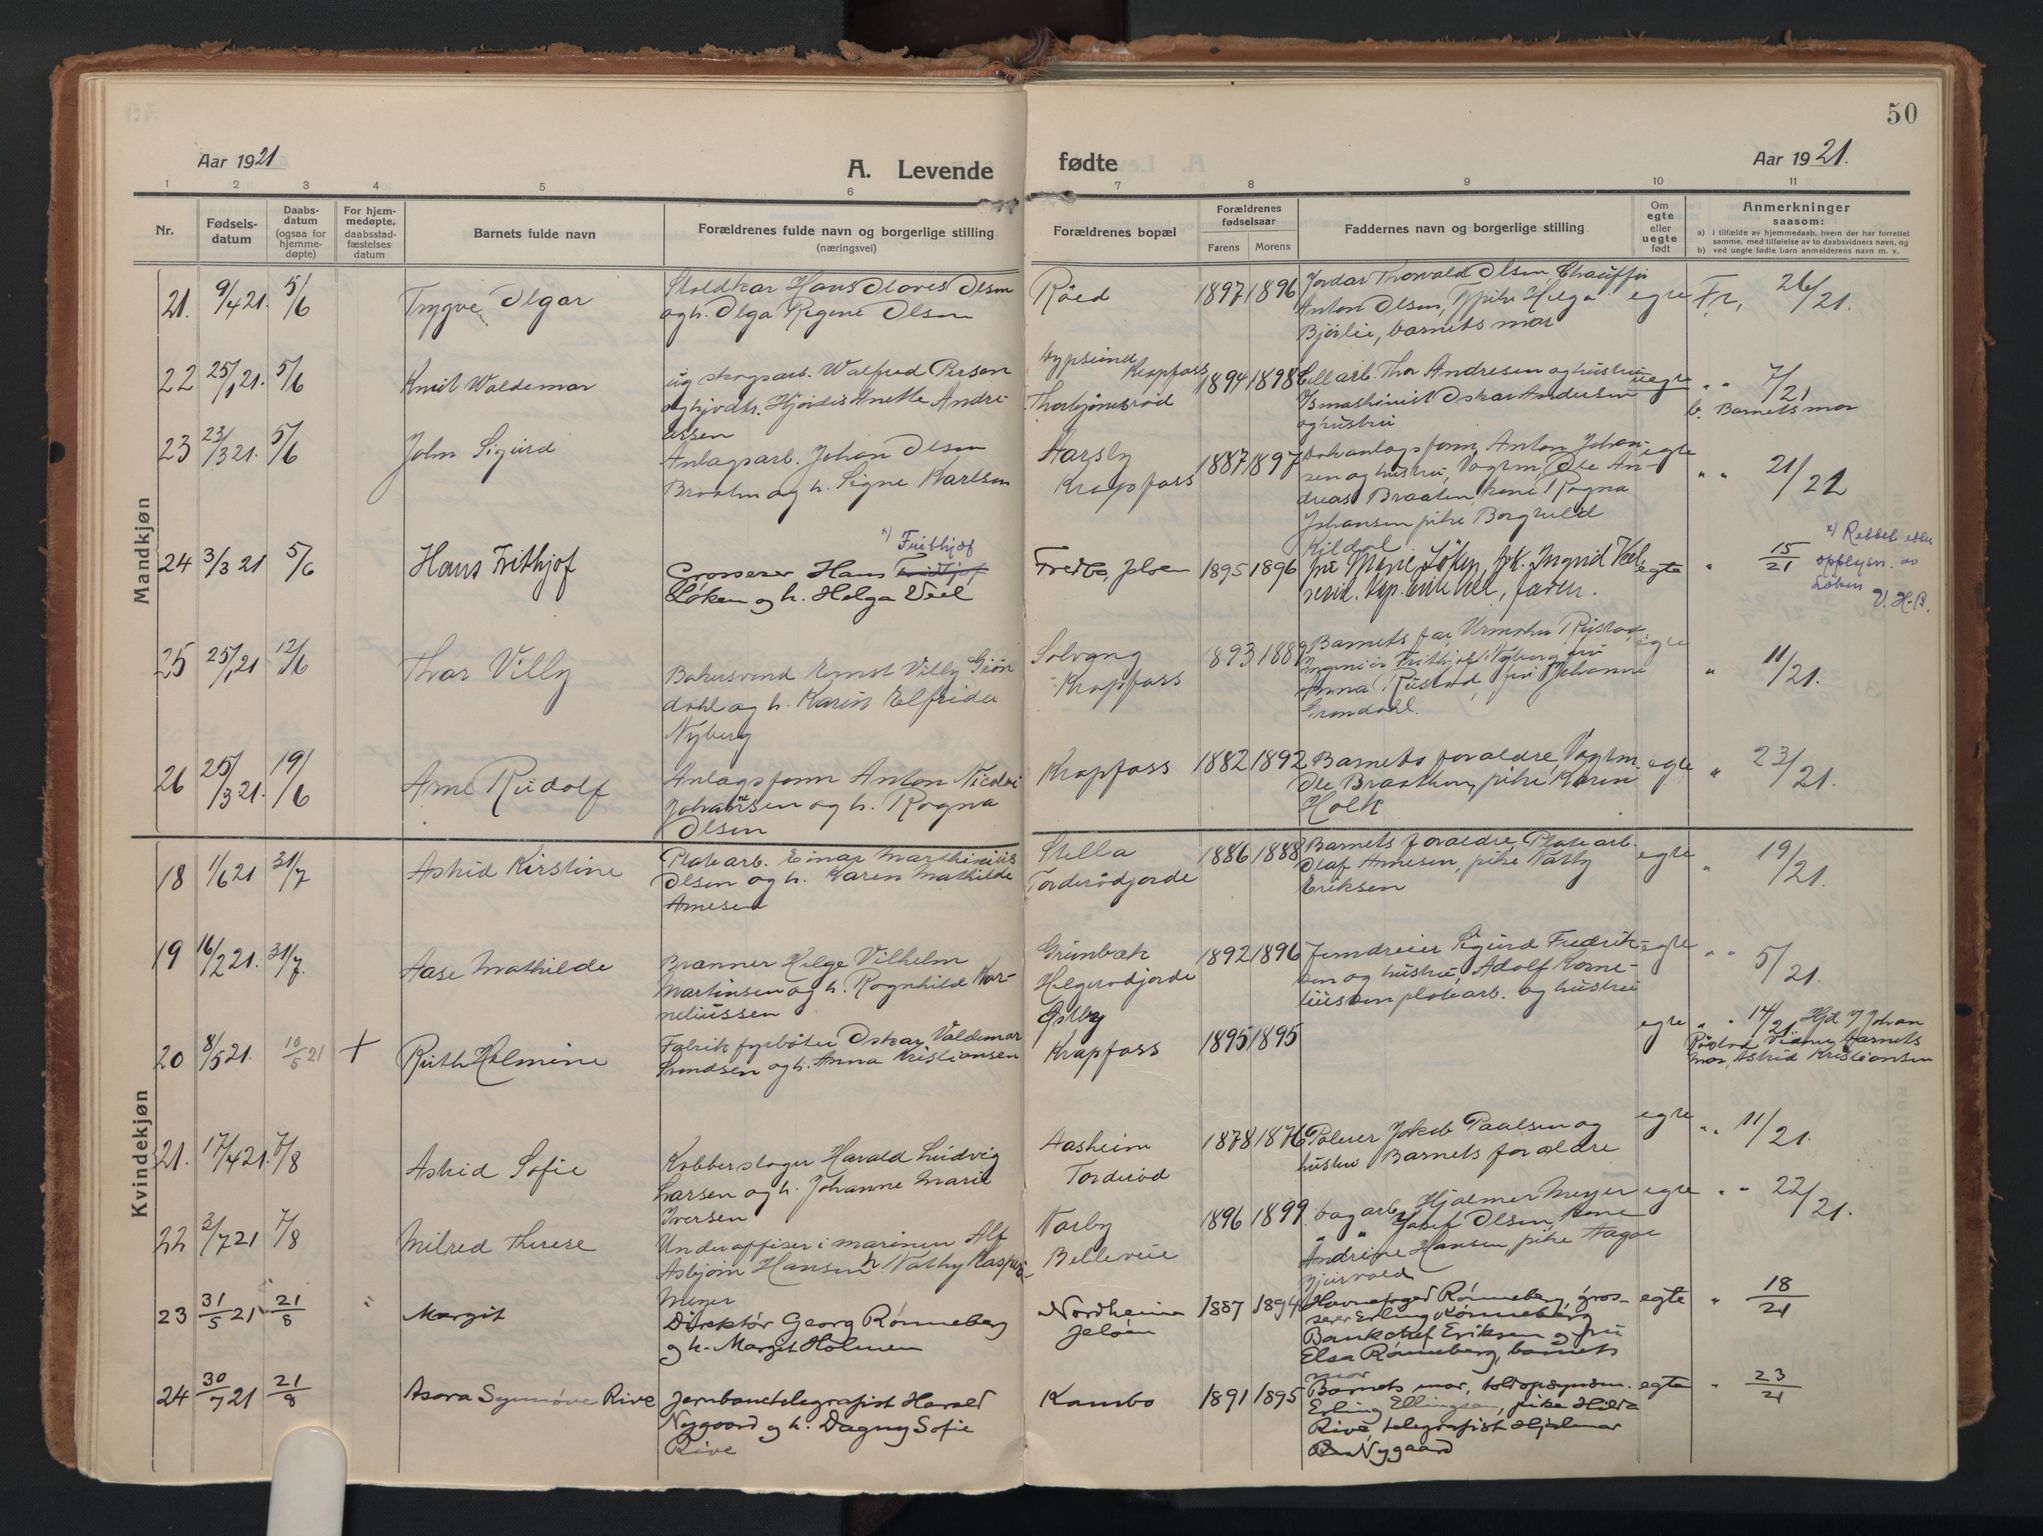 50
Aar 1921
A. Levende
fødte
Aar 1921.
1 2 3 4 5 6 7 8 9 10 11
Nr.
Fødsels-
datum
Daabs-
datum
(ogsaa for
hjemme-
døpte)
For hjem-
medøpte,
daabsstad-
fæstelses
datum
Barnets fulde navn
Forældrenes fulde navn og borgerlige stilling
(næringsvei)
Forældrenes bopæl
Forældrenes
fødselsaar
Farens Morens
Faddernes navn og borgerlige stilling
Om
egte
eller
uegte
født
Anmerkninger
saasom:
a) I tilfælde av hjemmedaab, hvem der har forrettet
samme, med tilføielse av to daabsvidners navn, og
b) ved uegte født barn anmelderens navn m. v.
Mandkjøn
21. 9/4 21. 5/6 Trygve Olgar
Hans Olsen
og h. Olga Regine Olsen
Røed
1897 1896
Thorvald Olsen Chauffør
Anton Olsen, Pike Helga
Bjørlie, barnets mor
egte Fr. 26/21.
22 25/1 21. 5/6 Knut Waldemar
ug skogsarb. Walfred Persen
Hjørdis Anette Andre-
assen
Krapfoss
Thorbjørnsrød
1894 1898
Cellarb. Thor Andresen og hustru
Oskar Andersen
og hustru
uegte " " 7/21
b. Barnets mor
23 23/3 21. 5/6 John Sigurd
Anlagsarb. Johan Olsen
Braaten og h. Signe Karlsen
Aarsby
Krapfoss
1887 1897
Anton Johan-
sen og hustru, Vagtm. Ole An-
dreas Braaten, kone Ragna
Johansen pike Borghild
Kildal
egte " " 21/21
24 3/3 21 5/6 Hans Frithjof
x) Frithjof
Grosserer Hans Fridtjof
Løken og h. Helga Veel
Fredbo Jeløen
1895 1896
fru Marie Løken, frk. Ingrid Veel
faren.
egte " 15/21
x) Rettet efter
opplysn. av
Løken
V. H-B.
25 25/1 21 12/6 Thor Villy
Bakersvend Ernst Villy Grøn
dahl og h. Karin Elfrida
Nyberg
Solvang
Krapfoss
1893 1889
Barnets far, Urmaker Rustad,
Ingeniør Frithjof Nyberg, fru
Anna Rustad, fru Johanne
Grøndahl.
egte " 11/21.
26 25/3 21. 19/6 Arne Rudolf
Anlagsform Anton Nicolai
Johansen og h. Ragna
Olsen
Krapfoss
1882 1892
Barnets foraldre, Vagtm.
Ole Braathen, pike Karen
Holk
egte " 23/21.
Kvindekjøn
18 1/6 21 31/7 Astrid Kirstine
Platearb. Einar Marthinius
Olsen og h. Karen Mathilde
Arnesen
Stella
Torderødjorde
1886 1888
Barnets foraldre, Platearb.
Olaf Arnesen, pike Nathy
Eriksen
egte " 19/21.
19 16/2 21. 31/7. Aase Mathilde
Brænner Helge Vilhelm
Martinsen og h. Ragnhild Kor-
neliussen
Grünbæk
Helgerødjorde
1892 1896
Jerndreier Sigurd Fredrik-
sen og hustru, Adolf Korne-
liussen platearb. og hustru
egte " " 5/21.
20 8/5 21. 10/5 21 + Ruth Holmine
Fabrik fyrbøter Oskar Valdemar
Svendsen og h. Anna Kristiansen
Østby
Krapfoss
1895 1895
egte " " 14/21. Hjd v/ Johan
Røstad Vidner barnets
mor, Astrid Kristiansen
21. 17/4 21. 7/8 Astrid Sofie
Kobberslager Harald Ludvig
Larsen og h. Johanne Marie
Iversen
Aasheim
Torderød
1878 1876
Polerer Jakob Paulsen og
hustru Barnets foraldre
egte " " 11/21.
22 2/7 21 7/8 Milred Therese
Underoffiser i marinen Alf
Asbjørn Hansen h. Nathy Kaspara
Meyer
Varby
Bellevue
1896 1899
bagarb. Hjalmer Meyer
" " Josef Olsen, kone
Andrine Hansen, pike Aagot
Bjervald
egte " " 22/21.
23 31/5 21 21/8 Margit
Direktør Georg Rønneberg
og h. Margit Holmen
Nordheim
Jeløen
1887 1894
Havnefoged Rønneberg, gros-
serer Erling Rønneberg
Bankchef Eriksen og fru
Elsa Rønneberg, barnets
mor
egte " 18/21
24 30/7 21 21/8 Asora Synnøve Rive
Jernbanetelegrafist Harald
Nygaard og h. Dagny Sofie
Rive
Kambo
1891 1895
Barnets mor, toldopsynsm.
Erling Ellingsen, pike Hilda
Rive, telegrafist Hjalmar
Nygaard
egte " 23/21